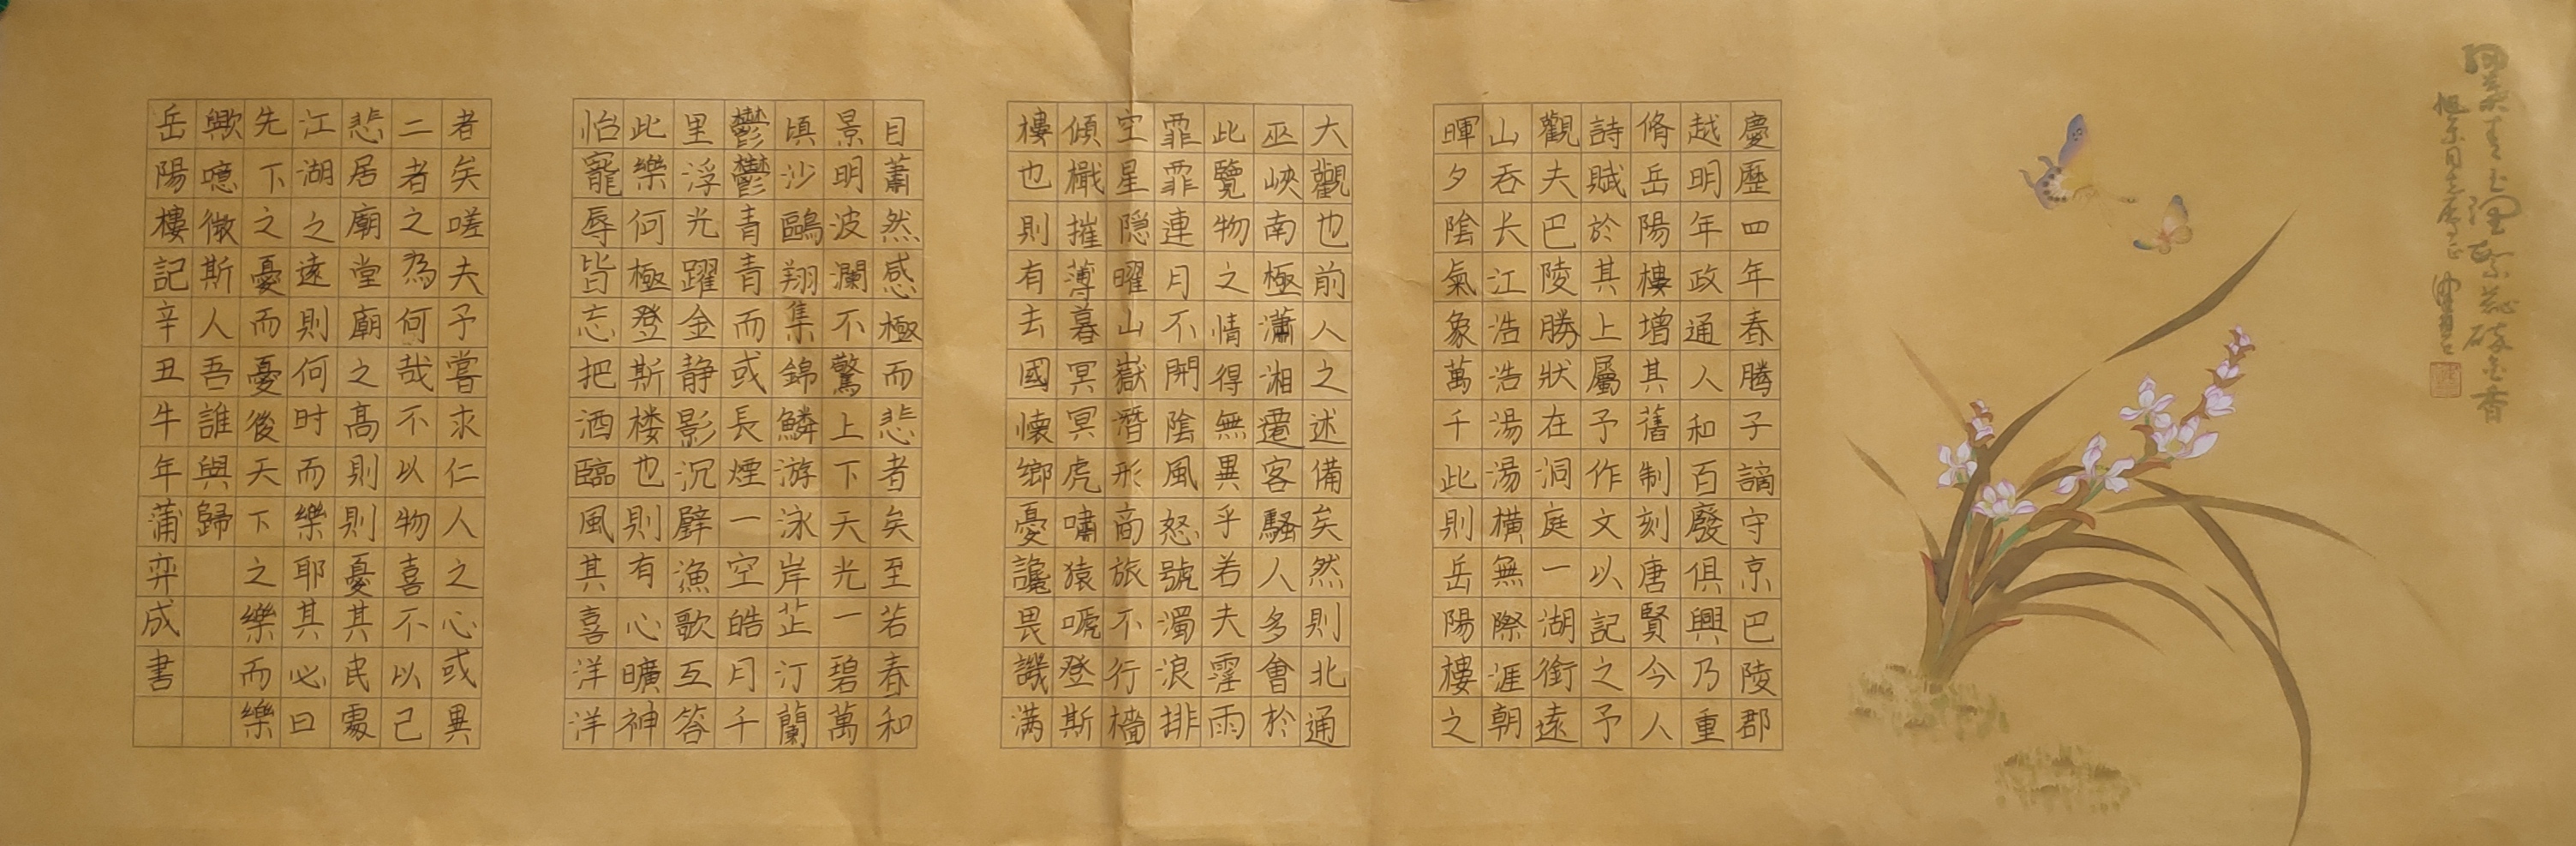 慶歷四年春腾子謫守京巴陵郡
越明年政通人和百廢俱興乃重
脩岳陽樓增其舊制刻唐賢今人
詩賦於其上屬予作文以記之予
觀夫巴陵勝狀在洞庭一湖銜遠
山吞长江浩浩湯湯橫無際涯朝
暉夕陰氣象萬千此則岳陽樓之
大觀也前人之述備矣然則北通
巫峽南極瀟湘遷客騷人多會於
此覽物之情得無異乎若夫霪雨
霏霏連月不開陰風怒號濁浪排
空星隐曜山嶽潛形商旅不行檣
傾檝摧薄暮冥冥虎嘯猿嗁登斯
樓也則有去國懷鄉憂讒畏譏满
目蕭然感極而悲者矣至若春和
景明波瀾不驚上下天光一碧萬
頃沙鷗翔集錦鱗游泳岸芷汀蘭
鬱鬱青青而或長煙一空皓月千
里浮光躍金静影沉壁漁歌互答
此樂何極登斯楼也則有心曠神
怡寵辱皆忘把酒臨風其喜洋洋
者矣嗟夫予嘗求仁人之心或異
二者之為何哉不以物喜不以己
悲居廟堂廟之高則則憂其民處
江湖之遠則何时而樂耶其必曰
先下之憂而憂後天下之樂而樂
歟噫微斯人吾誰與歸
岳陽樓記辛丑牛年蒲弈成書